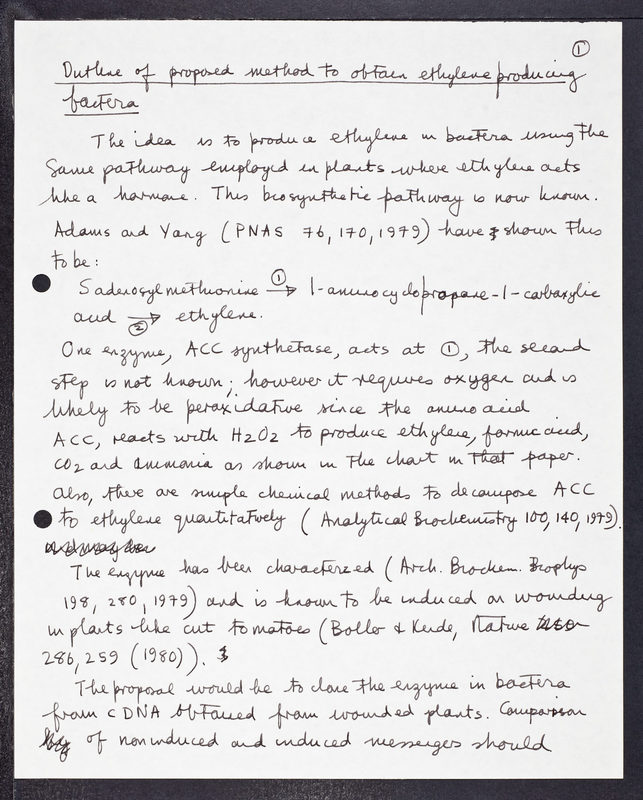 ①
Outline of proposed method to obtain ethylene producing
bacteria
The idea is to produce ethylene in bacteria using the
same pathway employed in plants where ethylene acts
like a hormone. This biosynthetic pathway is now known.
Adams and Yang (PNAS 76, 170, 1979) have shown this
to be:
S adenosylmethionine ①→ 1-aminocyclopropane-1-carboxylic
acid →② ethylene.
One enzyme, ACC synthetase, acts at ①, the second
step is not known; however it requires oxygen and is
likely to be peroxidative since the amino acid
ACC, reacts with H2O2 to produce ethylene, formic acid,
CO2 and ammonia as shown in the chart in that paper.
Also, there are simple chemical methods to decompose ACC
to ethylene quantitatively (Analytical Biochemistry 100, 140, 1979).
The enzyme has been characterized (Arch. Biochem. Biophys
198, 280, 1979) and is known to be induced on wounding
in plants like cut tomatoes (Boller & Kende, Nature
286, 259 (1980)).
The proposal would be to clone the enzyme in bacteria
from cDNA obtained from wounded plants. Comparison
of noninduced and induced messengers should